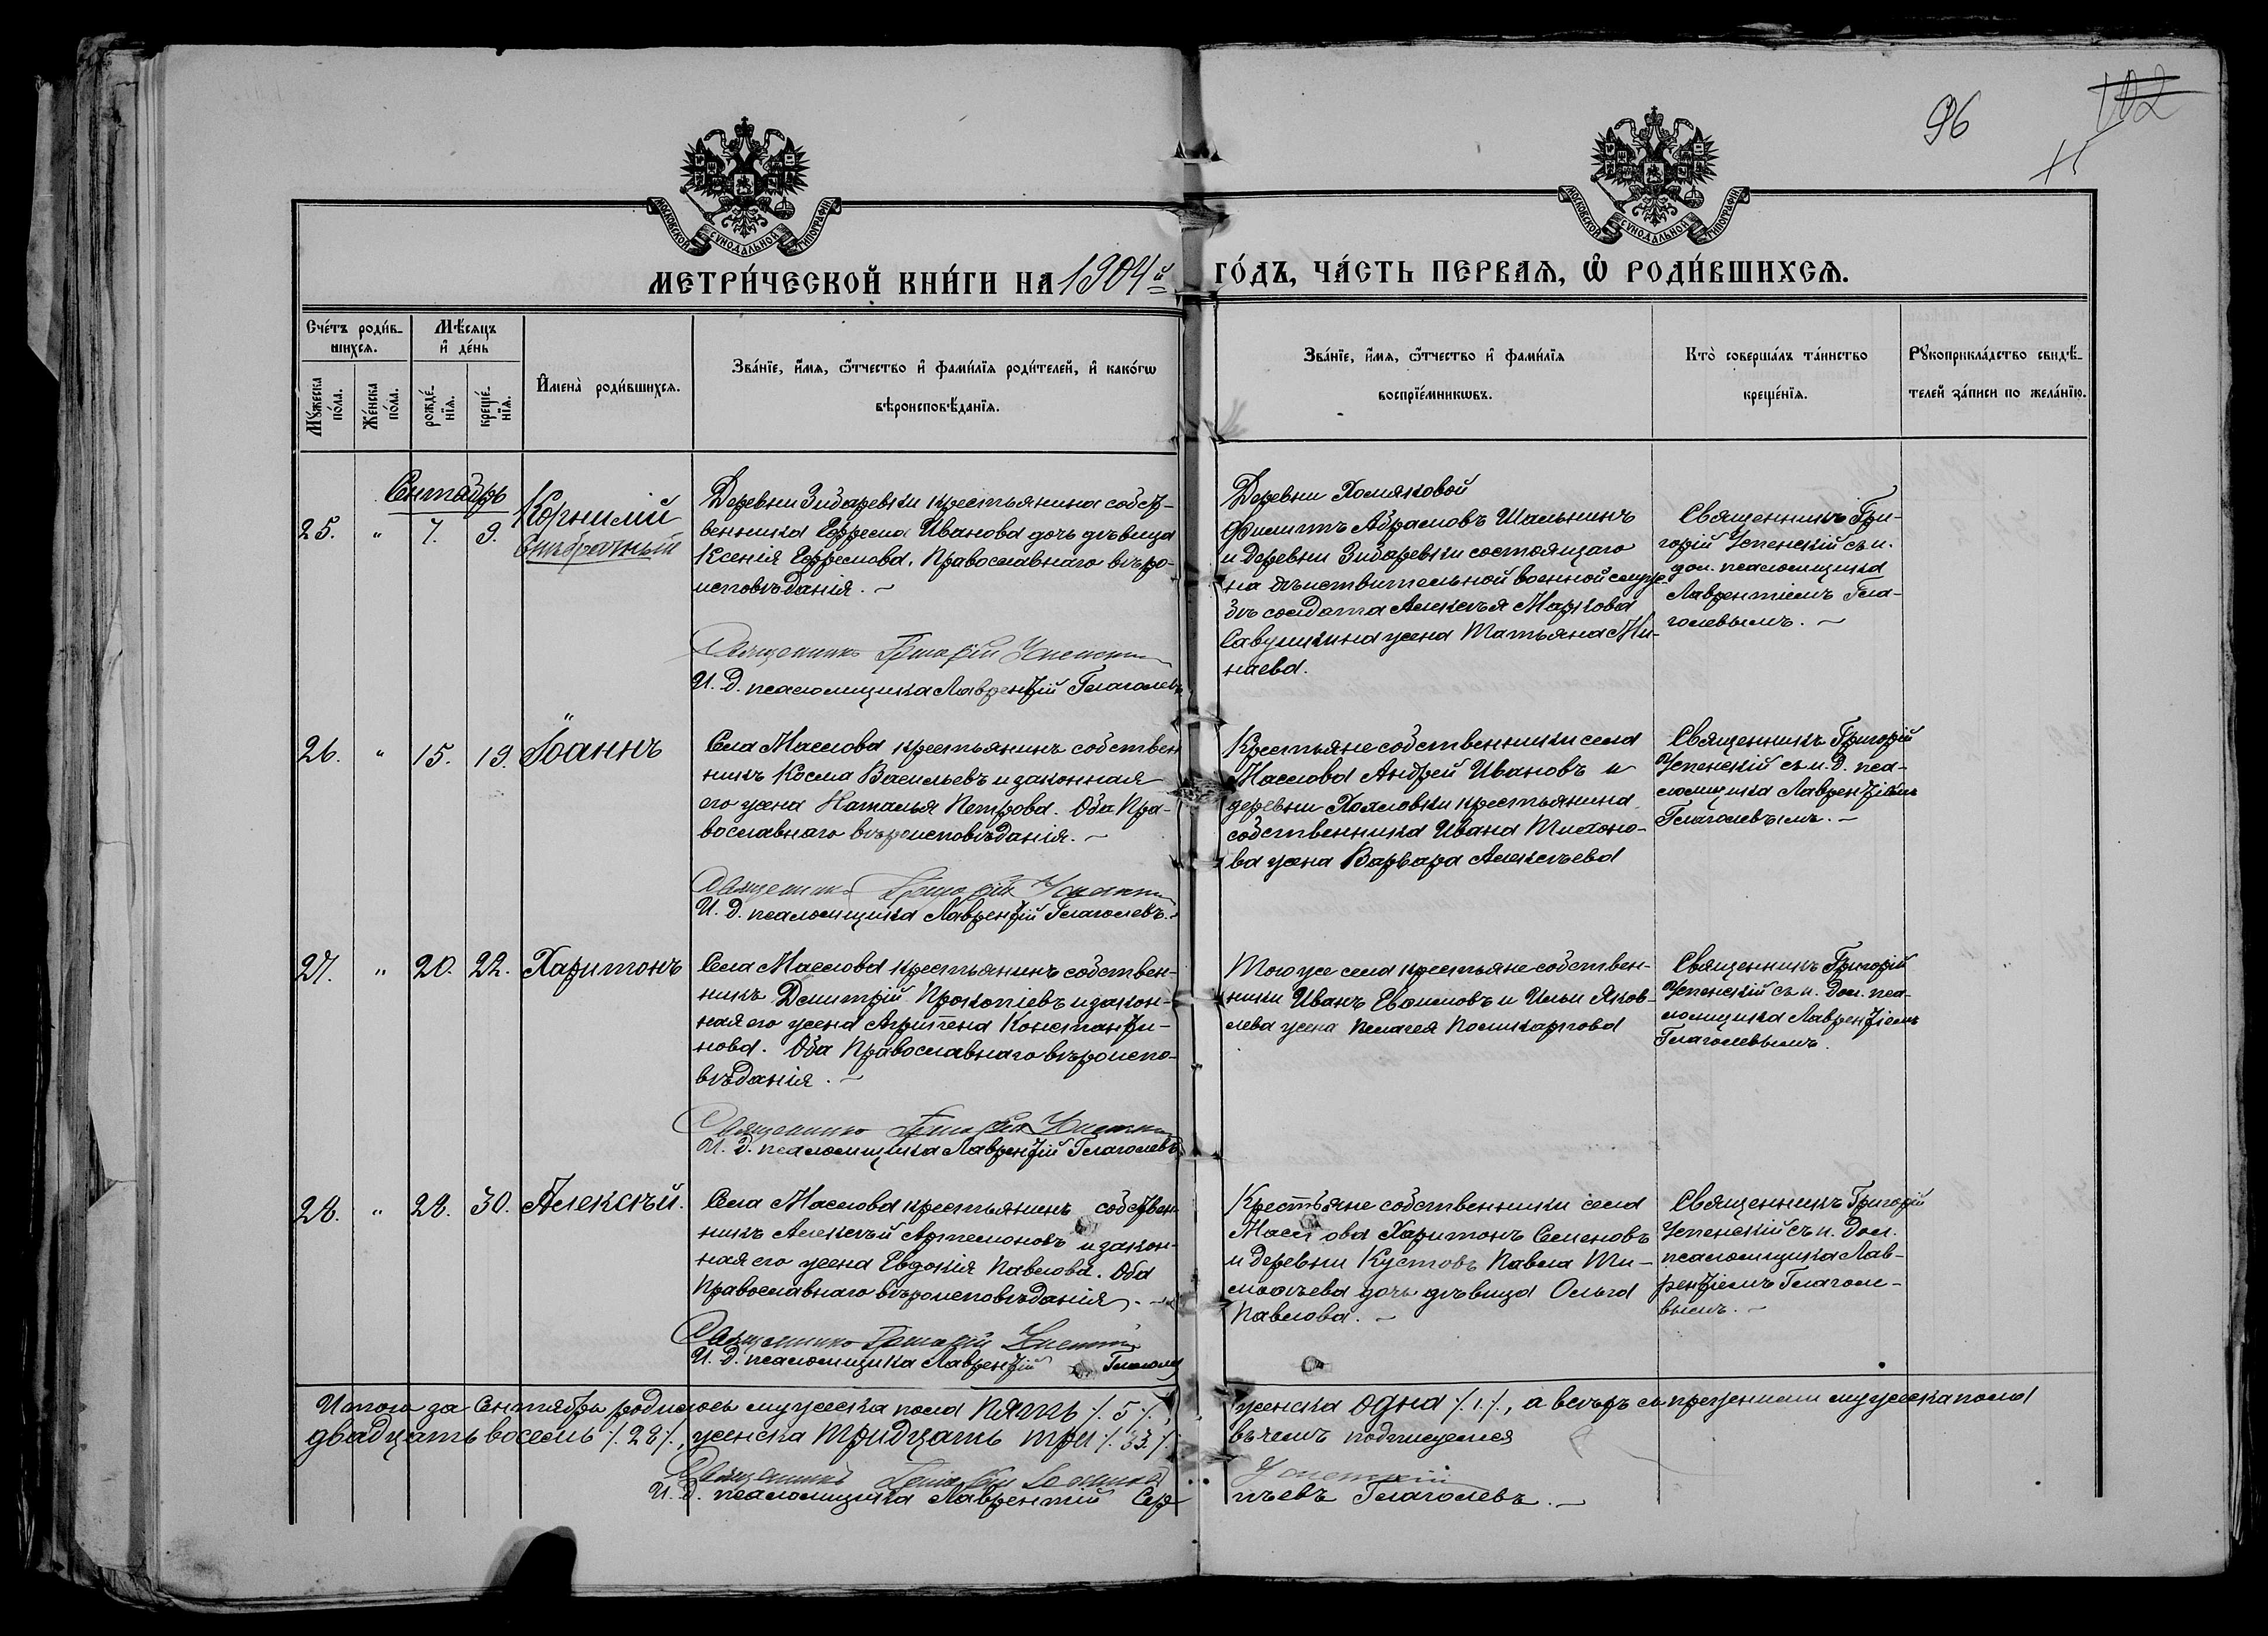 96
102
МОСКОВСКОЙ СѴНОДАЛЬНОЙ ТИПОГРАФІИ
МОСКОВСКОЙ СѴНОДАЛЬНОЙ ТИПОГРАФІИ
МЕТРИ́ЧЕСКОЙ КНИ́ГИ НА 1904й ГО́ДЪ, ЧА́СТЬ ПЕРВАѦ, Ѡ҆ РОДИ́ВШИХСѦ.
Сче́тъ роди́в-
шихсѧ.
Мѣ́сѧцъ
и҆ де́нь
Мꙋ́жеска
по́ла.
Же́нска
по́ла.
рожде́-
нїѧ.
креще́-
нїѧ.
И҆мена̀ роди́вшихсѧ.
Зва́нїе, и҆́мѧ, ѻ҆́тчество и҆ фами́лїѧ роди́телей, и҆ како́гѡ
вѣроисповѣ́данїѧ.
Зва́нїе, и҆́мѧ, ѻ҆́тчество и҆ фами́лїѧ
воспрїе́мникѡвъ.
Кто̀ соверша́лъ та́инство
креще́нїѧ.
Рꙋкоприкла́дство свидѣ́-
телей за́писи по жела́нїю.
Сентябрь
25. " 7. 9. Корнилій
Внѣбрачный
Деревни Зибаревки крестьянина собст-
венника Ефрема Иванова дочь дѣвица
Ксенія Ефремова. Православнаго вѣро-
исповѣданія.
Священникъ Григорій Успенскій
И. Д. псаломщика Лаврентій Глаголевъ
Деревни Хомяковой
Филиппъ Абрамовъ Шальнинъ
и деревни Зибаревки состоящаго
на дѣйствительной военной служ-
бѣ солдата Алексѣя Маркова
Савушкина жена Татьяна Ми-
наева.
Священникъ Гри-
горій Успенскій съ и.
дол. псаломщика
Лаврентіемъ Гла-
голевымъ.
26. " 15. 19. Іоаннъ
Села Маслова крестьянинъ собствен
никъ Косма Васильевъ и законная
его жена Наталья Петрова. Оба Пра-
вославнаго вѣроисповѣданія.
Священникъ Григорій Успенскій
И. Д. псаломщика Лаврентій Глаголевъ.
Крестьяне собственники села
Маслова Андрей Ивановъ и
деревни крестьянина
собственника Ивана Тихоно-
ва жена Варвара Алексѣева
Священникъ Григорій
Успенскій съ и. д. пса-
ломщика Лаврентіемъ
Глаголевымъ.
27. " 20. 22. Харитонъ
Села Маслова крестьянинъ собствен-
никъ Димитрій Прокопіевъ и закон-
ная его жена Агрипена Константи-
нова. Оба Православнаго вѣроиспо-
вѣданія.
Священникъ Григорій Успенскій
И. Д. псаломщика Лаврентій Глаголевъ
Того же села крестьяне собствен-
ники Иванъ Евфимовъ и Ильи Яков-
лева жена Пелагея Поликарпова
Священникъ Григорій
Успенскій съ и. Дол. пса-
ломщика Лаврентіемъ
Глаголевымъ.
28. " 28. 30. Алексѣй.
Села Маслова крестьянинъ собствен
никъ Алексѣй Артемоновъ и закон-
ная его жена Евдокія Павлова. Оба
Православнаго вѣроисповѣданія.
Священникъ Григорій Успенскій
И. Д. псаломщика Лаврентій Глаголевъ
Крестьяне собственники села
Маслова Харитонъ Семеновъ
и деревни Кустовъ Павла Ти-
мофѣева дочь дѣвица Ольга
Павлова.
Священникъ Григорій
Успенскій съ и. Дол.
псаломщика Лав-
рентіемъ Глаголе-
вымъ.
Итого за Сентябрь родилось мужеска пола пять /. 5 /. женска одна /. 1. /., а всѣхъ съ прежними мужеска пола
двадцать восемь /. 28 /., женска тридцать три /. 33. /. въ чемъ подписуемся
Священникъ Григорій Успенскій
И. Д. псаломщика Лаврентій Сер гѣевъ Глаголевъ.